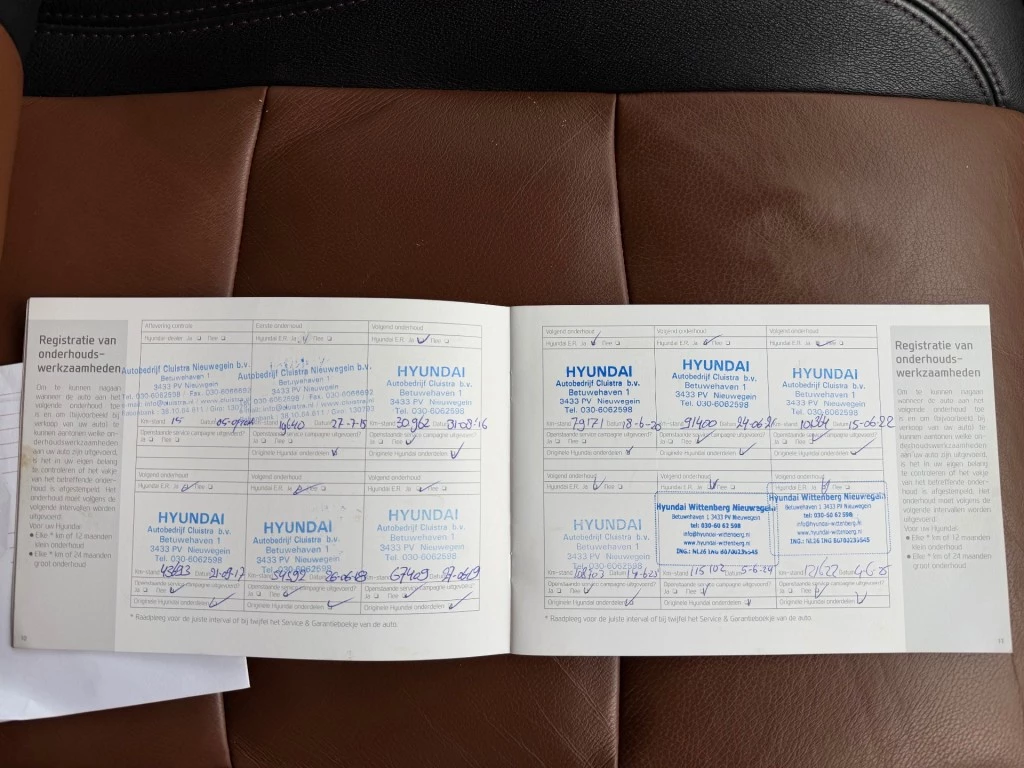 Registratie van
onderhouds-
werkzaamheden
Om te kunnen nagaan
wanneer de auto aan het
volgende onderhoud toe
is en om (bijvoorbeeld bij
verkoop van uw auto) te
kunnen aantonen welke on-
derhoudswerkzaamheden
aan uw auto zijn uitgevoerd,
is het in uw eigen belang
te controleren of het vakje
van het betreffende onder-
houd is afgestempeld. Het
onderhoud moet volgens de
volgende intervallen worden
uitgevoerd:
Voor uw Hyundai:
• Elke * km of 12 maanden
klein onderhoud
• Elke * km of 24 maanden
groot onderhoud
Aflevering controle
Hyundai dealer Ja Nee
Autobedrijf Cluistra Nieuwegein bv
Betuwehaven 1
3433 PV Nieuwegein
Km-stand 15 Datum
Openstaande service campagne uitgevoerd?
Ja Nee
Eerste onderhoud
Hyundai E.R. Ja Nee
Autobedrijf Cluistra Nieuwegein bv
Betuwehaven 1
3433 PV Nieuwegein
27-7-15
Openstaande service campagne uitgevoerd?
Ja Nee
Originele Hyundai onderdelen
Volgend onderhoud
Hyundai E.R. Ja Nee
HYUNDAI
Autobedrijf Cluistra b.v.
Betuwehaven 1
3433 PV Nieuwegein
Tel. 030-6062598
Km-stand 30962 Datum
Openstaande service campagne uitgevoerd?
Ja Nee
Originele Hyundai onderdelen
Volgend onderhoud
Hyundai E.R. Ja Nee
HYUNDAI
Autobedrijf Cluistra b.v.
Betuwehaven 1
3433 PV Nieuwegein
Tel. 030-6062598
Km-stand Datum 21-09-17
Openstaande service campagne uitgevoerd?
Ja Nee
Originele Hyundai onderdelen
Volgend onderhoud
Hyundai E.R. Ja Nee
HYUNDAI
Autobedrijf Cluistra b.v.
Betuwehaven 1
3433 PV Nieuwegein
Tel. 030-6062598
Km-stand 54592 Datum
Openstaande service campagne uitgevoerd?
Ja Nee
Originele Hyundai onderdelen
Volgend onderhoud
Hyundai E.R. Ja Nee
HYUNDAI
Autobedrijf Cluistra b.v.
Betuwehaven 1
3433 PV Nieuwegein
Tel. 030-6062598
Km-stand 67409 Datum
Openstaande service campagne uitgevoerd?
Ja Nee
Originele Hyundai onderdelen
* Raadpleeg voor de juiste interval of bij twijfel het Service & Garantieboekje van de auto.
10
Volgend onderhoud
Hyundai E.R. Ja Nee
HYUNDAI
Autobedrijf Cluistra b.v.
Betuwehaven 1
3433 PV Nieuwegein
Tel. 030-6062598
Km-stand 79171 Datum 18-6-20
Openstaande service campagne uitgevoerd?
Ja Nee
Originele Hyundai onderdelen
Volgend onderhoud
Hyundai E.R. Ja Nee
HYUNDAI
Autobedrijf Cluistra b.v.
Betuwehaven 1
3433 PV Nieuwegein
Tel. 030-6062598
Km-stand 91400 Datum 24-06-21
Openstaande service campagne uitgevoerd?
Ja Nee
Originele Hyundai onderdelen
Volgend onderhoud
Hyundai E.R. Ja Nee
HYUNDAI
Autobedrijf Cluistra b.v.
Betuwehaven 1
3433 PV Nieuwegein
Tel. 030-6062598
Km-stand Datum 15-06-22
Openstaande service campagne uitgevoerd?
Ja Nee
Originele Hyundai onderdelen
Volgend onderhoud
Hyundai E.R. Ja Nee
HYUNDAI
Autobedrijf Cluistra b.v.
Betuwehaven 1
3433 PV Nieuwegein
Tel. 030-6062598
Km-stand Datum
Openstaande service campagne uitgevoerd?
Ja Nee
Originele Hyundai onderdelen
Volgend onderhoud
Hyundai E.R. Ja Nee
Hyundai Wittenberg Nieuwegein
Betuwehaven 1 3433 PV Nieuwegein
tel: 030-60 62 598
info@hyundai-wittenberg.nl
www.hyundai-wittenberg.nl
Km-stand 115102 Datum 5-6-24
Openstaande service campagne uitgevoerd?
Ja Nee
Originele Hyundai onderdelen
Volgend onderhoud
Hyundai E.R. Ja Nee
Hyundai Wittenberg Nieuwegein
Betuwehaven 1 3433 PV Nieuwegein
tel: 030-60 62 598
info@hyundai-wittenberg.nl
www.hyundai-wittenberg.nl
Km-stand 121622 Datum
Openstaande service campagne uitgevoerd?
Ja Nee
Originele Hyundai onderdelen
* Raadpleeg voor de juiste interval of bij twijfel het Service & Garantieboekje van de auto.
Registratie van
onderhouds-
werkzaamheden
Om te kunnen nagaan
wanneer de auto aan het
volgende onderhoud toe
is en om (bijvoorbeeld bij
verkoop van uw auto) te
kunnen aantonen welke on-
derhoudswerkzaamheden
aan uw auto zijn uitgevoerd,
is het in uw eigen belang
te controleren of het vakje
van het betreffende onder-
houd is afgestempeld. Het
onderhoud moet volgens de
volgende intervallen worden
uitgevoerd:
Voor uw Hyundai:
• Elke * km of 12 maanden
klein onderhoud
• Elke * km of 24 maanden
groot onderhoud
11